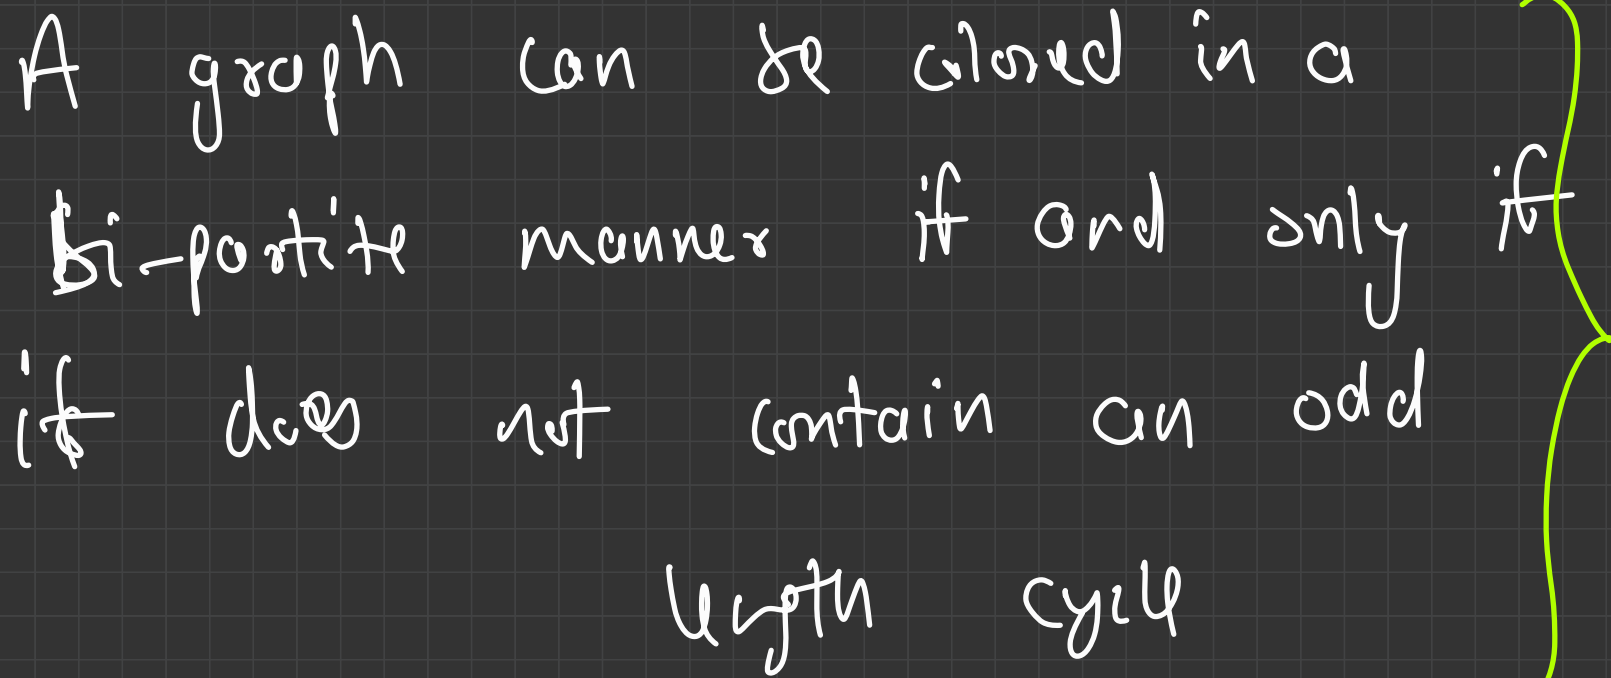 A graph can be colored in a
bi-partite manner if and only if
it does not contain an odd
length cycle